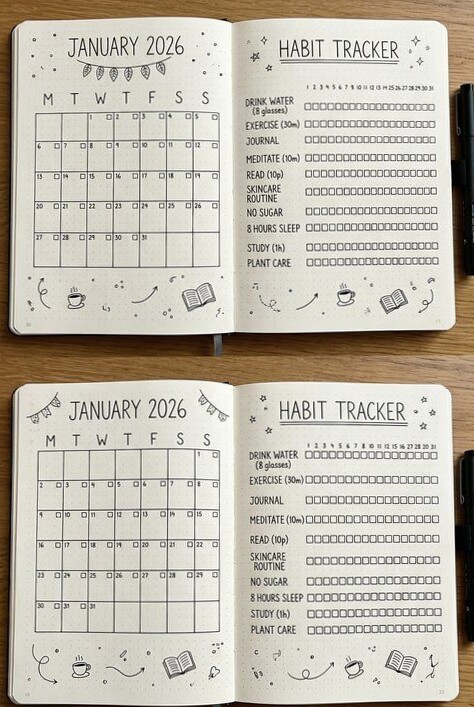 JANUARY 2026
M T W T F S S
1 2 3 4 5
6 7 8 9 10 11 12
13 14 15 16 17 18 19
20 21 22 23 24 25 26
27 28 29 30 31
HABIT TRACKER
1 2 3 4 5 6 7 8 9 10 11 12 13 14 25 26 27 28 29 30 31
DRINK WATER
(8 glasses)
EXERCISE (30m)
JOURNAL
MEDITATE (10m)
READ (10p)
SKINCARE
ROUTINE
NO SUGAR
8 HOURS SLEEP
STUDY (1h)
PLANT CARE
JANUARY 2026
M T W T F S S
1
2 3 4 5 6 7 8
9 10 11 12 13 14 15
16 17 18 19 20 21 22
23 24 25 26 27 28 29
30 31 31
HABIT TRACKER
1 2 3 4 5 6 7 8 9 10 11 12 13 14 25 26 27 28 29 30 31
DRINK WATER
(8 glasses)
EXERCISE (30m)
JOURNAL
MEDITATE (10m)
READ (10p)
SKINCARE
ROUTINE
NO SUGAR
8 HOURS SLEEP
STUDY (1h)
PLANT CARE